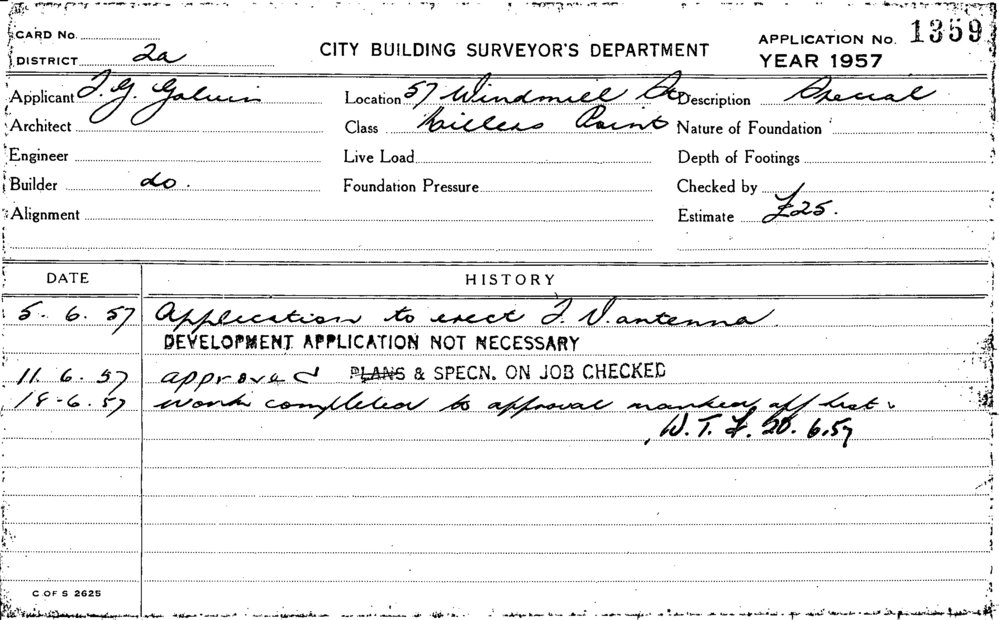 CARD No.
DISTRICT 2a
CITY BUILDING SURVEYOR'S DEPARTMENT
APPLICATION No. 1359
YEAR 1957
Applicant J. G. Galvin
Location 57 Windmill St
Description Special
Architect
Class Millers Point
Nature of Foundation
Engineer
Live Load
Depth of Footings
Builder do.
Foundation Pressure
Checked by
Alignment
Estimate £25.
DATE
HISTORY
5. 6. 57 Application to erect T. V. antenna
DEVELOPMENT APPLICATION NOT NECESSARY
11. 6. 57 approved PLANS & SPECN. ON JOB CHECKED
18-6.57 work completed to approval marked off list.
W. T. F. 20. 6.57
C OF S 2625